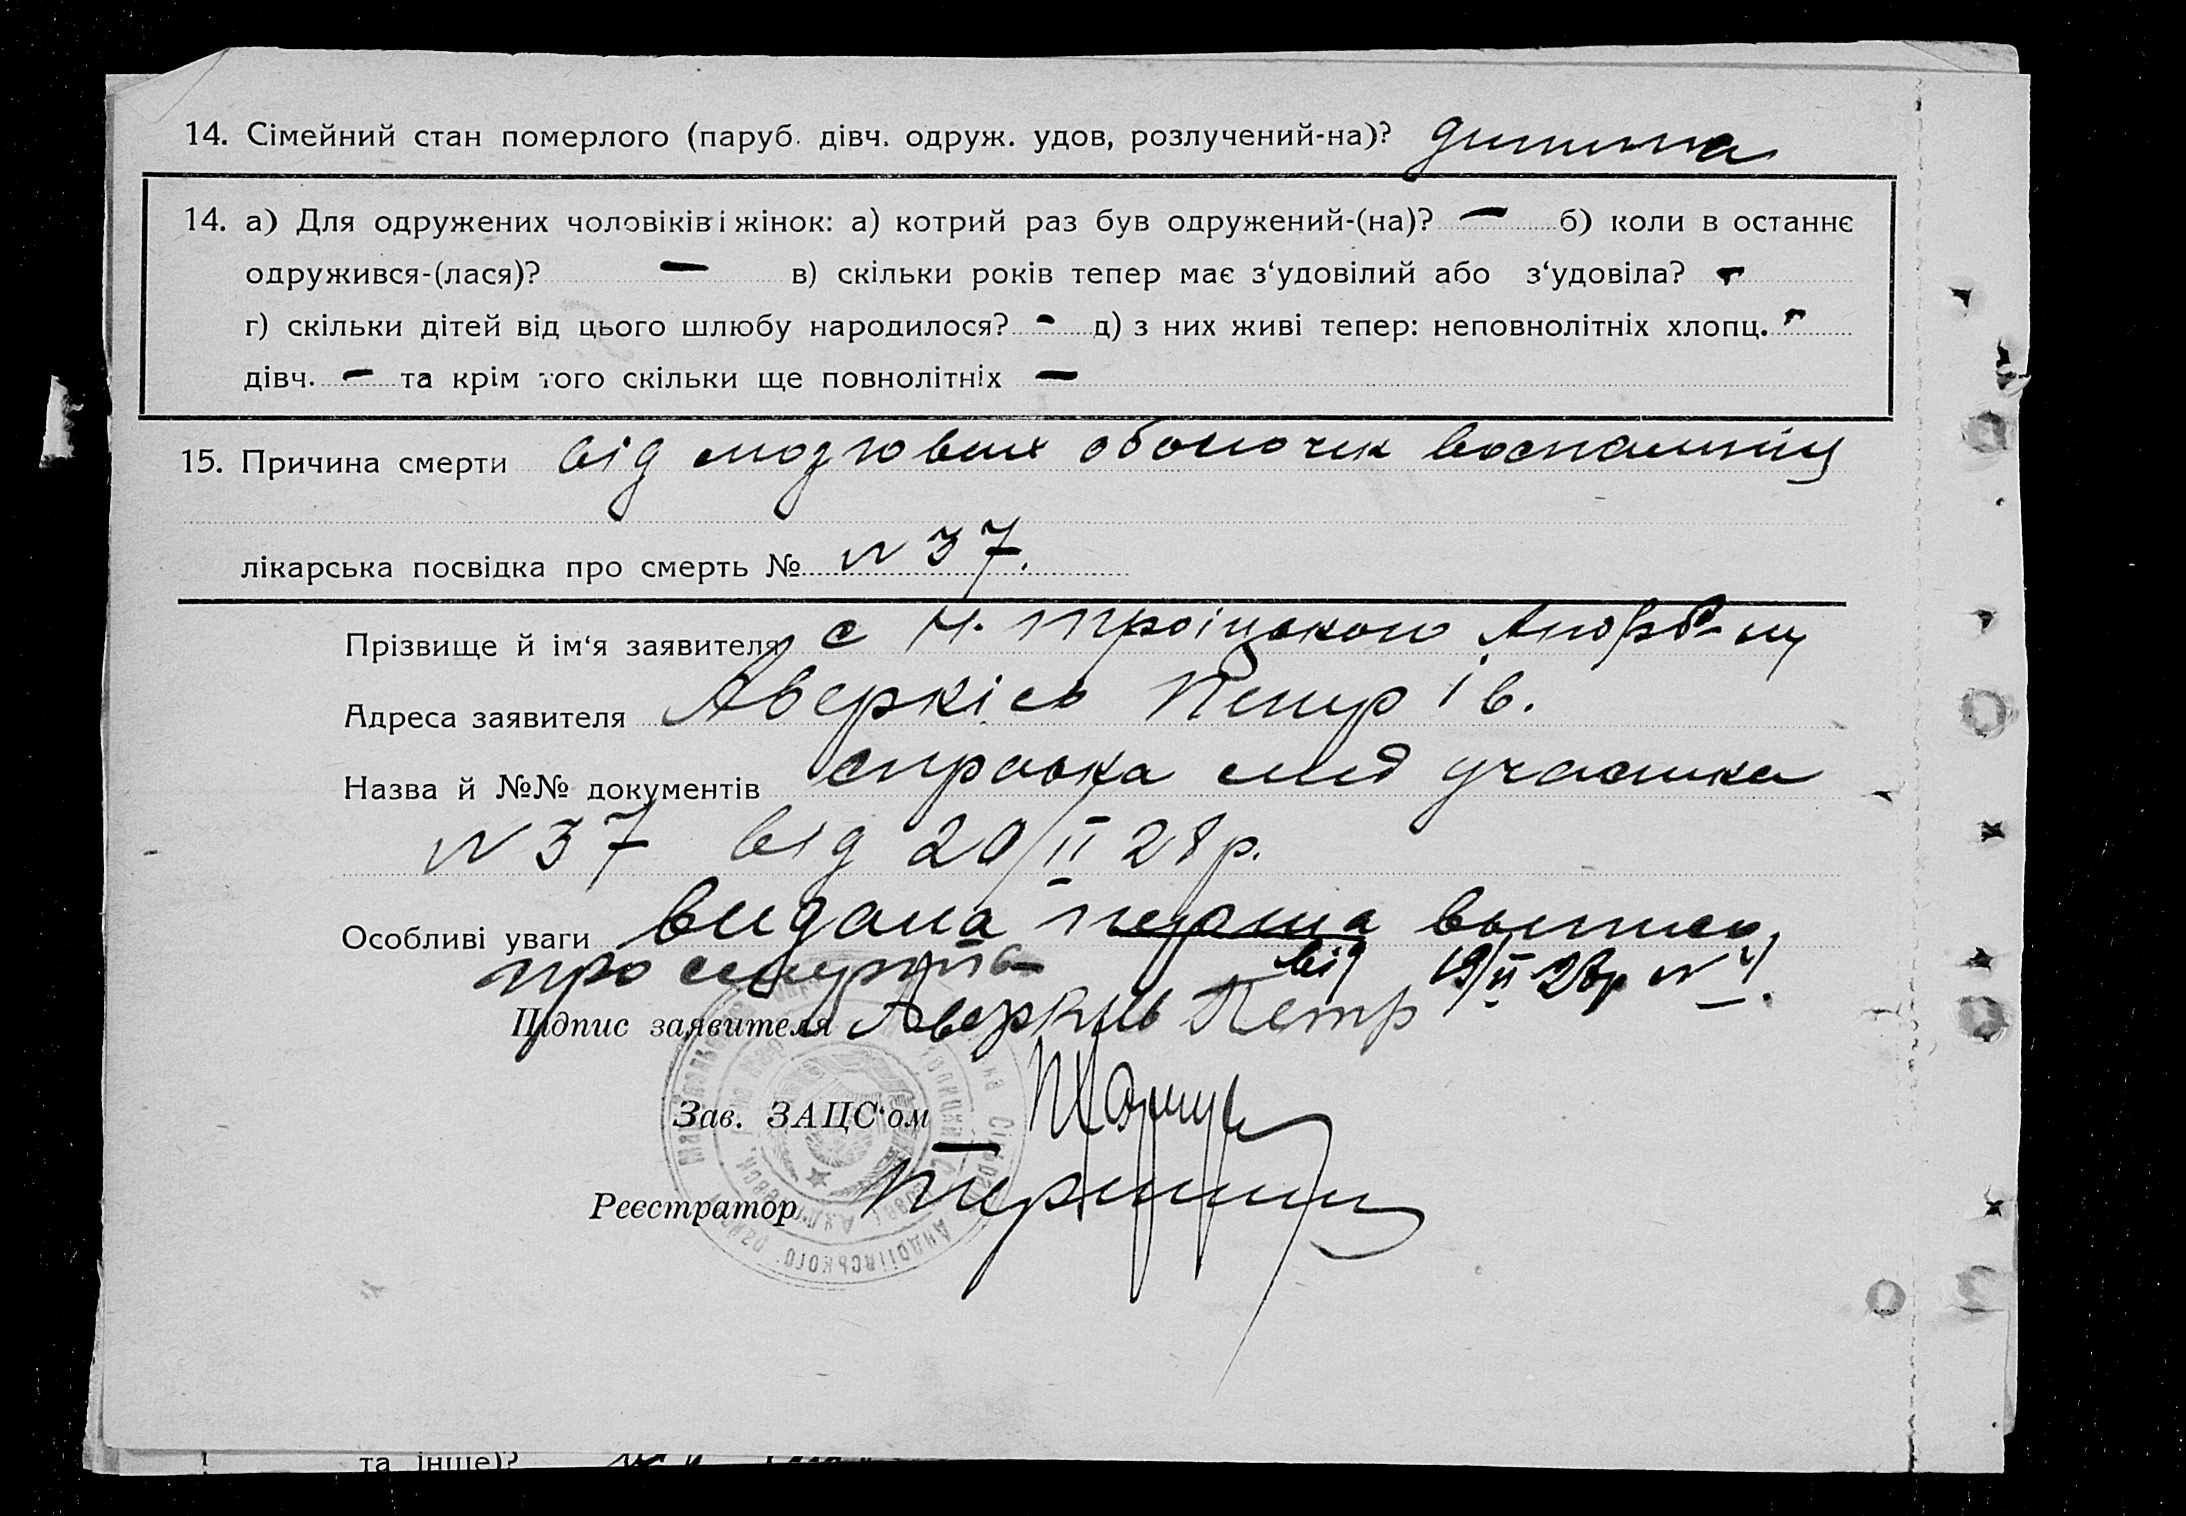 14. Сімейний стан померлого (паруб. дівч. одруж. удов, розлучений-на)? дитина
14. а) Для одружених чоловіків і жінок: а) котрий раз був одружений-(на)? — б) коли в останнє
одружився-(лася)? — в) скільки років тепер має з‘удовілий або з‘удовіла? -
г) скільки дітей від цього шлюбу народилося? - д) з них живі тепер: неповнолітніх хлопц. -
дівч. — та крім того скільки ще повнолітніх —
15. Причина смерти від мозговых оболочек
лікарська посвідка про смерть № N 37.
Прізвище й ім‘я заявителя с Н. Троіцького
Адреса заявителя Аверкієв Петр Ів.
Назва й №№ документів справка мед участка
N 37 від 20/II 28 р.
Особливі уваги видана перша
про смерть від 19/II 28р N
Підпис заявителя Аверкив Петр
Зав. ЗАЦС‘ом
Реєстратор
та інше)?